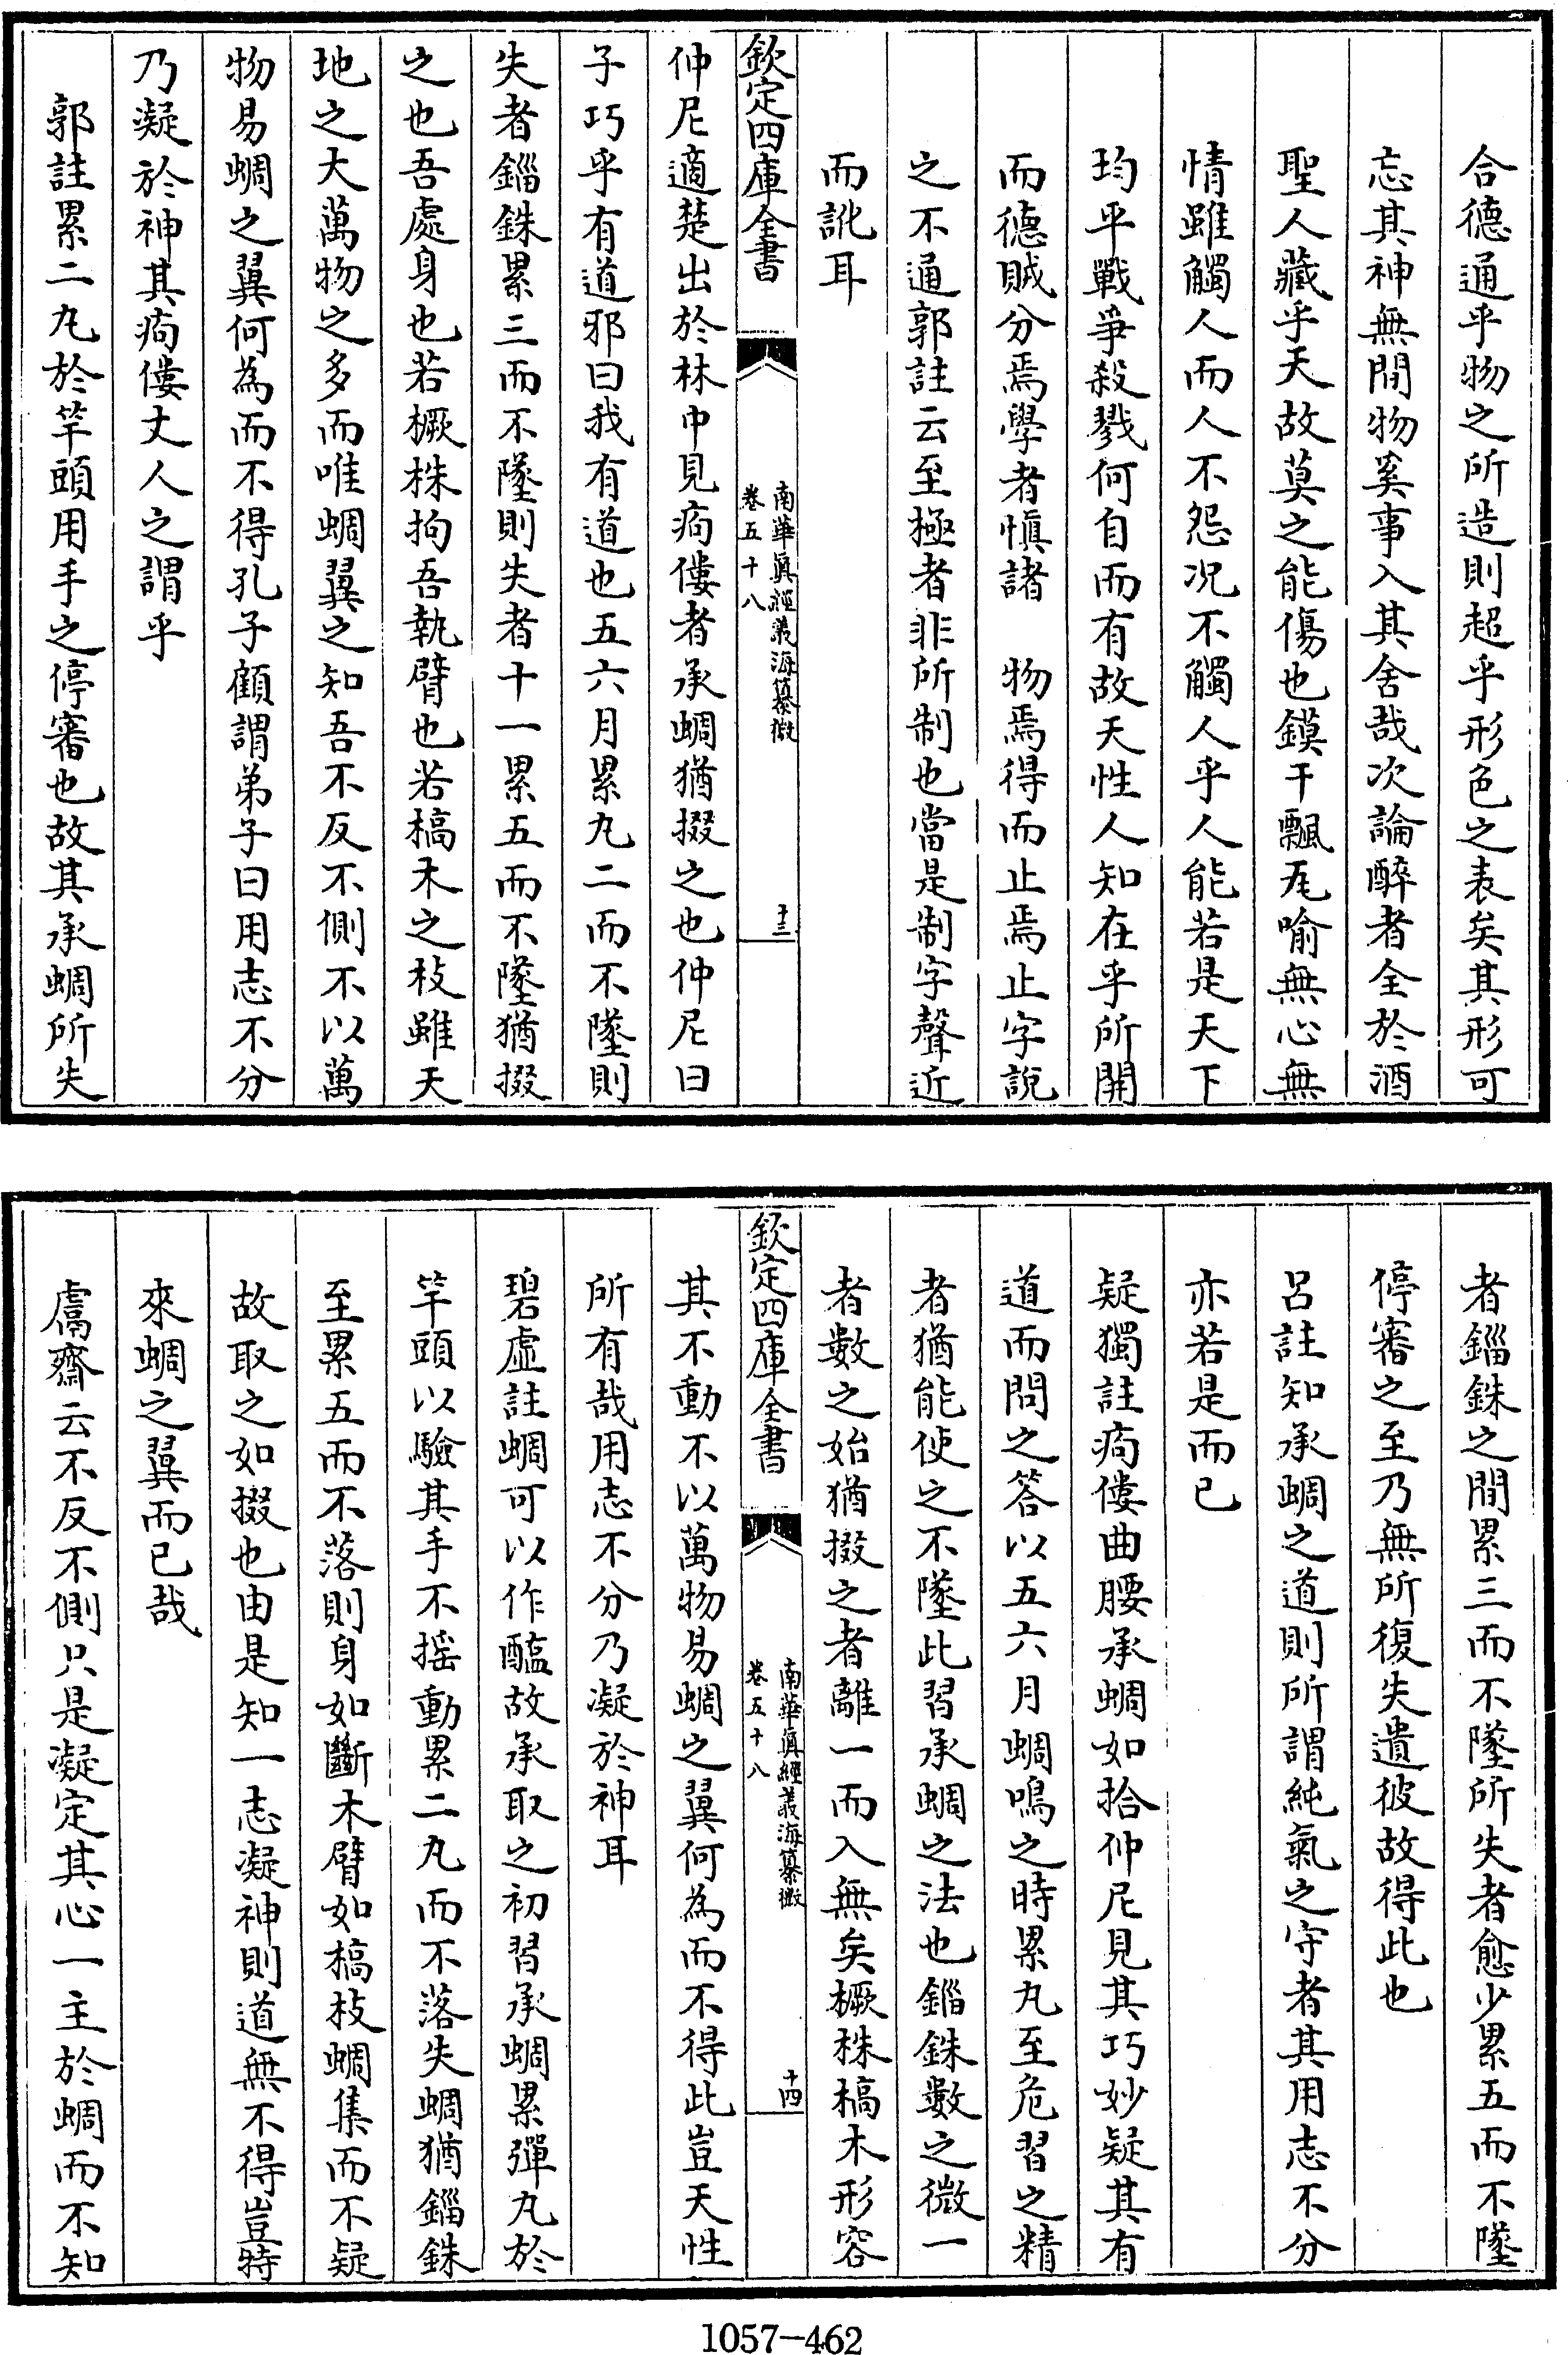 合德通乎物之所造則超乎形色之表矣其形可
忘其神無間物奚事入其舍哉次論醉者全於酒
聖人藏乎天故莫之能傷也鏌干飄瓦喻無心無
情雖觸人而人不怨况不觸人乎人能若是天下
均平戰爭殺戮何自而有故天性人知在乎所開
而德賊分焉學者慎諸　物焉得而止焉止字說
之不通郭註云至極者非所制也當是制字聲近
而訛耳
欽定四庫全書
南華真經義海纂微
卷五十八
十三
仲尼適楚出於林中見痀僂者承蜩猶掇之也仲尼曰
子巧乎有道邪曰我有道也五六月累九二而不墜則
失者錙銖累三而不墜則失者十一累五而不墜猶掇
之也吾處身也若橛株拘吾執臂也若槁木之枝雖天
地之大萬物之多而唯蜩翼之知吾不反不側不以萬
物易蜩之翼何為而不得孔子顧謂弟子曰用志不分
乃凝於神其痀僂丈人之謂乎
郭註累二九於竿頭用手之停審也故其承蜩所失
者錙銖之間累三而不墜所失者愈少累五而不墜
停審之至乃無所復失遺彼故得此也
呂註知承蜩之道則所謂純氣之守者其用志不分
亦若是而已
疑獨註痀僂曲腰承蜩如拾仲尼見其巧妙疑其有
道而問之答以五六月蜩鳴之時累丸至危習之精
者猶能使之不墜此習承蜩之法也錙銖數之微一
者數之始猶掇之者離一而入無矣橛株槁木形容
欽定四庫全書
南華真經義海纂微
卷五十八
十四
其不動不以萬物易蜩之翼何為而不得此豈天性
所有哉用志不分乃凝於神耳
碧虛註蜩可以作醢故承取之初習承蜩累彈丸於
竿頭以驗其手不搖動累二丸而不落失蜩猶錙銖
至累五而不落則身如斷木臂如槁枝蜩集而不疑
故取之如掇也由是知一志凝神則道無不得豈特
來蜩之翼而已哉
鬳齋云不反不側只是凝定其心一主於蜩而不知
1057-462